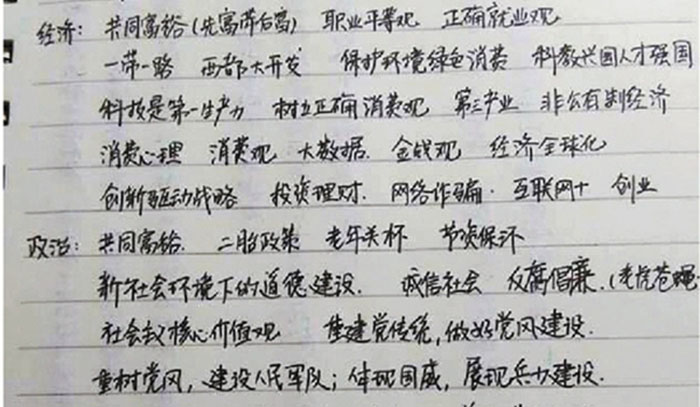 经济: 共同富裕(先富带后富) 职业平等观 正确就业观
一带一路 西部大开发 保护环境绿色消费 科教兴国人才强国
科技是第一生产力 树立正确消费观 第三产业 非公有制经济
消费心理 消费观 大数据. 金钱观 经济全球化
创新驱动战略 投资理财. 网络诈骗. 互联网+ 创业
政治: 共同富裕. 二胎政策 老年关怀 节资保环
新社会环境下的道德建设. 诚信社会 反腐倡廉.(老虎苍蝇
社会主义核心价值观 重建党传统,做好党风建设.
重树党风,建设人民军队;体现国威,展现兵力建设.